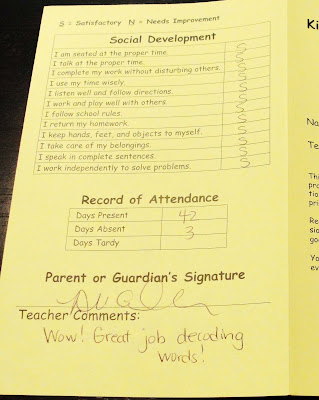 S = Satisfactory N = Needs Improvement
Social Development
I am seated at the proper time. S
I talk at the proper time. S
I complete my work without disturbing others. S
I use my time wisely. S
I listen well and follow directions. S
I work and play well with others. S
I follow school rules. S
I return my homework. S
I keep hands, feet, and objects to myself. S
I take care of my belongings. S
I speak in complete sentences. S
I work independently to solve problems. S
Record of Attendance
Days Present 42
Days Absent 3
Days Tardy
Parent or Guardian's Signature
Teacher Comments:
Wow! Great job decoding
words!
Ki
Na
Te
Thi
pro
tio
pri
Re
sio
goo
Yo
ev